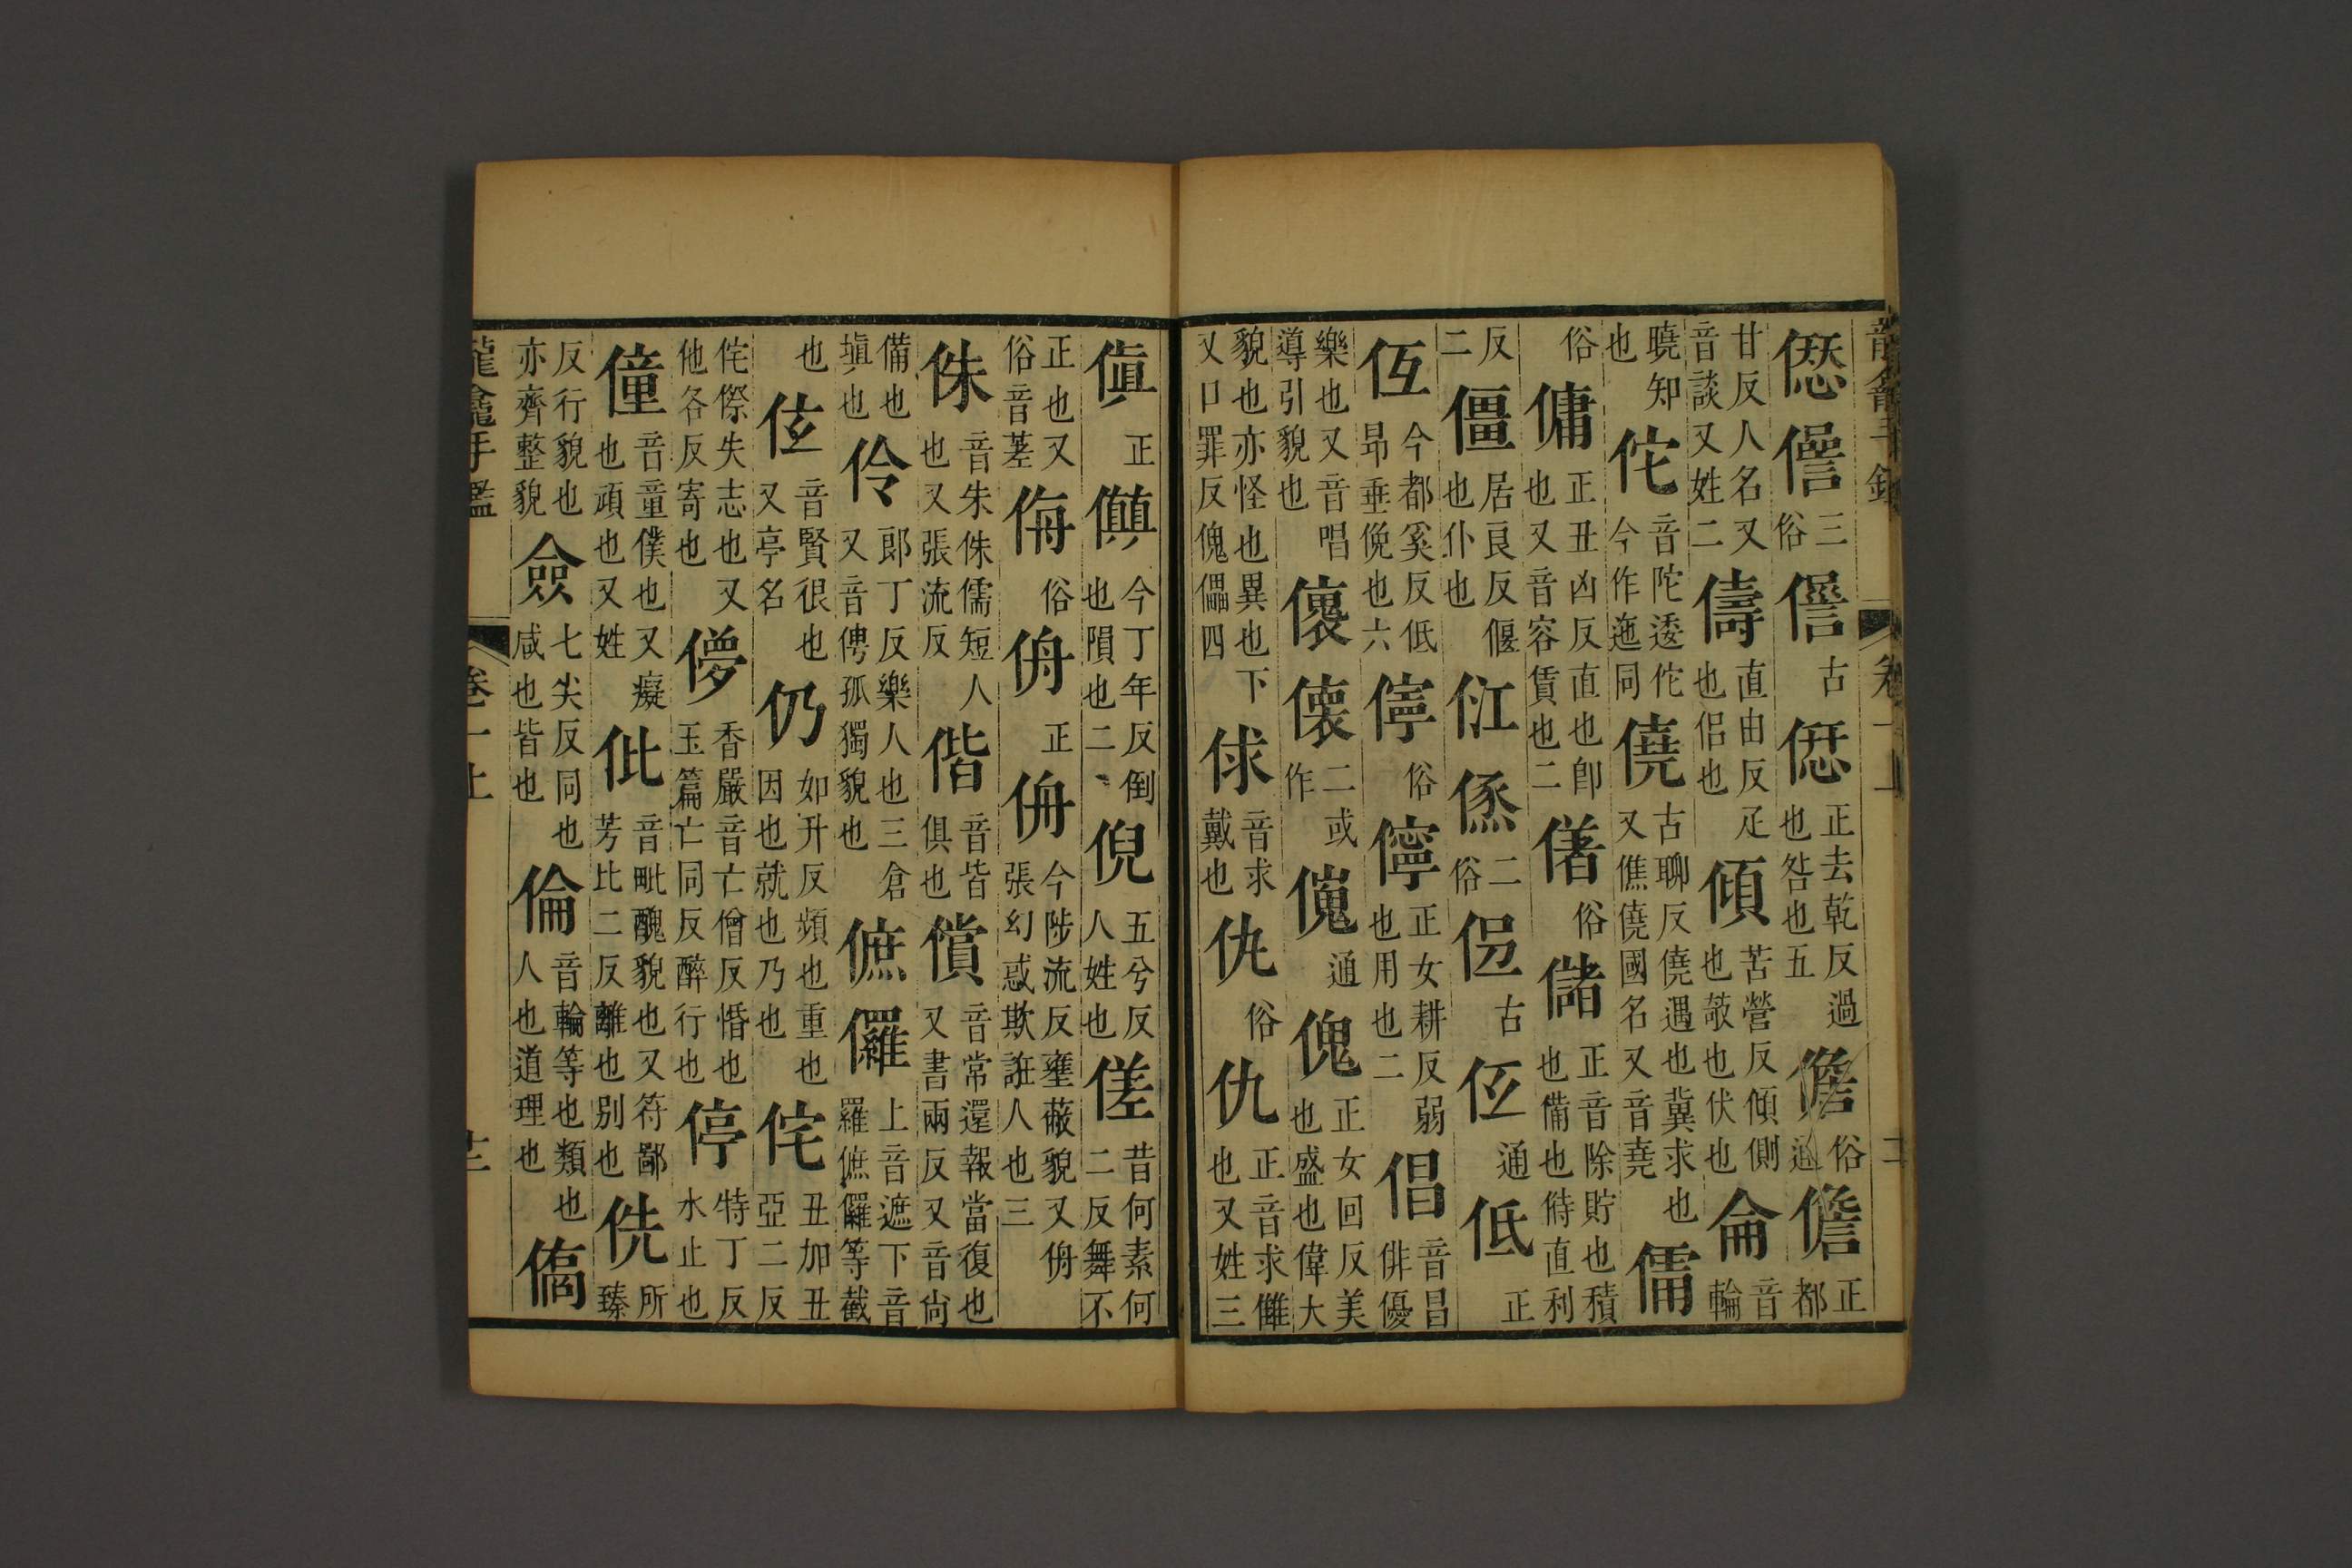 龍龕手鑑 卷一上
㥶𠎝三俗𠎝古㥶正去乾反過也咎也五儋俗通儋正都
甘反人名又音談又姓二儔直由反疋也侶也傾苦營反傾側也㩻也伏也侖音輪
曉知也佗音陀逶佗今作迤同僥古聊反僥遇也冀求也又僬僥國名又音堯儒
俗傭正丑凶反直也卽也又音容賃也二偖俗儲正音除貯也積也備也偫直利
反二僵居良反偃也仆也仜二俗古通低正
仾今都奚反低昂垂俛也六儜俗儜正女耕反弱也用也二倡音昌俳優
樂也又音唱導引貌也儴懷二或作傀通傀正女回反美也盛也偉大
貌也亦怪也異也下又口罪反傀儡四俅音求戴也㐜俗仇正音求讎也又姓三
傎正傎今丁年反倒也隕也二倪五兮反人姓也傞昔何素何二反舞不
正也又俗音莖侜俗侜正侜今陟流反壅蔽貌又侜張幻惑欺誑人也三
侏音朱侏儒短人也又張流反偕音皆俱也償音常還報當復也又書兩反又音尙
備也塡也伶郎丁反樂人也三倉又音俜孤獨貌也㒤儸上音遮下音羅㒤儸等截
也伭音賢很也又亭名仍如升反頻也重也因也就也乃也侘丑加丑亞二反
侘傺失志也又他各反寄也儚香嚴音亡僧反惛也玉篇亡同反醉行也停特丁反水止也
僮音童僕也又癡也頑也又姓仳音毗醜貌也又符鄙芳比二反離也别也侁所臻
反行貌也亦齊整貌僉七尖反同也咸也皆也倫音輪等也類也人也道理也
龍龕手鑑 卷一上